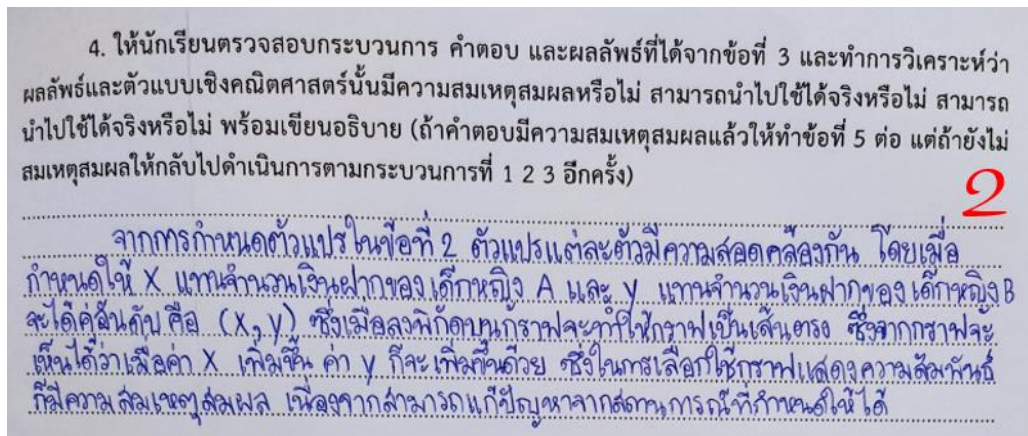 4. ให้นักเรียนตรวจสอบกระบวนการ คำตอบ และผลลัพธ์ที่ได้จากข้อที่ 3 และทำการวิเคราะห์ว่า
ผลลัพธ์และตัวแบบเชิงคณิตศาสตร์นั้นมีความสมเหตุสมผลหรือไม่ สามารถนำไปใช้ได้จริงหรือไม่ สามารถ
นำไปใช้ได้จริงหรือไม่ พร้อมเขียนอธิบาย (ถ้าคำตอบมีความสมเหตุสมผลแล้วให้ทำข้อที่ 5 ต่อ แต่ถ้ายังไม่
สมเหตุสมผลให้กลับไปดำเนินการตามกระบวนการที่ 1 2 3 อีกครั้ง)
2
จากการกำหนดตัวแปรในข้อที่ 2 ตัวแปรแต่ละตัวมีความสอดคล้องกัน โดยเมื่อ
กำหนดให้ X แทนจำนวนเงินฝากของเด็กหญิง A และ y แทนจำนวนเงินฝากของเด็กหญิง B
จะได้คู่อันดับคือ (X, y) ซึ่งเมื่อลงพิกัดบนกราฟจะทำให้กราฟเป็นเส้นตรง ซึ่งจากกราฟจะ
เห็นได้ว่าเมื่อค่า X เพิ่มขึ้น ค่า y ก็จะเพิ่มขึ้นด้วย ซึ่งในการเลือกใช้กราฟแสดงความสัมพันธ์
ก็มีความสมเหตุสมผล เนื่องจากสามารถแก้ปัญหาจากสถานการณ์ที่กำหนดให้ได้